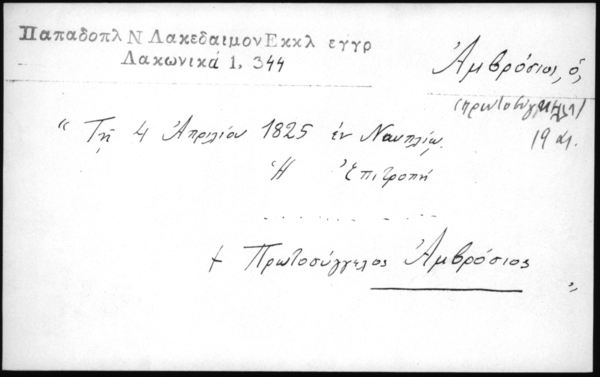 Παπαδοπλ Ν Λακεδαιμον Εκκλ εγγρ
Λακωνικά 1, 344
Ἀμβρόσιος, ὁ,
(πρωτοσύγκελλος)
19 αι.
" Τῇ 4 Ἀπριλίου 1825 ἐν Ναυπλίῳ.
Ἡ Ἐπιτροπή
. . . . . . . . . . .
† Πρωτοσύγγελος Ἀμβρόσιος "